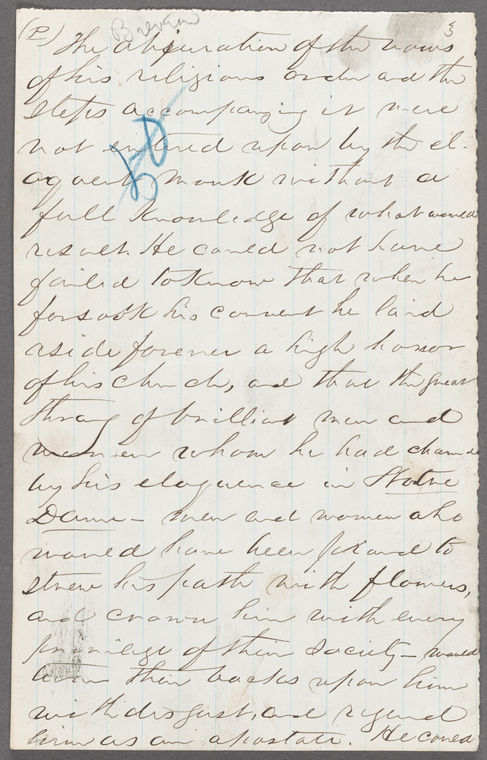 (P) 3
The abjuration of the vows
of his religious order and the
steps accompanying it were
not entered upon by the el-
oquent monk without a
full knowledge of what would
result. He could not have
failed to know that when he
forsook his convent he laid
aside forever a high honor
of his church, and that the great
throng of brilliant men and
women whom he had charmed
by his eloquence in Notre
Dame – men and women who
would have been proud to
strew his path with flowers,
and crown him with every
privilege of their society – would
turn their backs upon him
with disgust, and regard
him as an apostate. He could